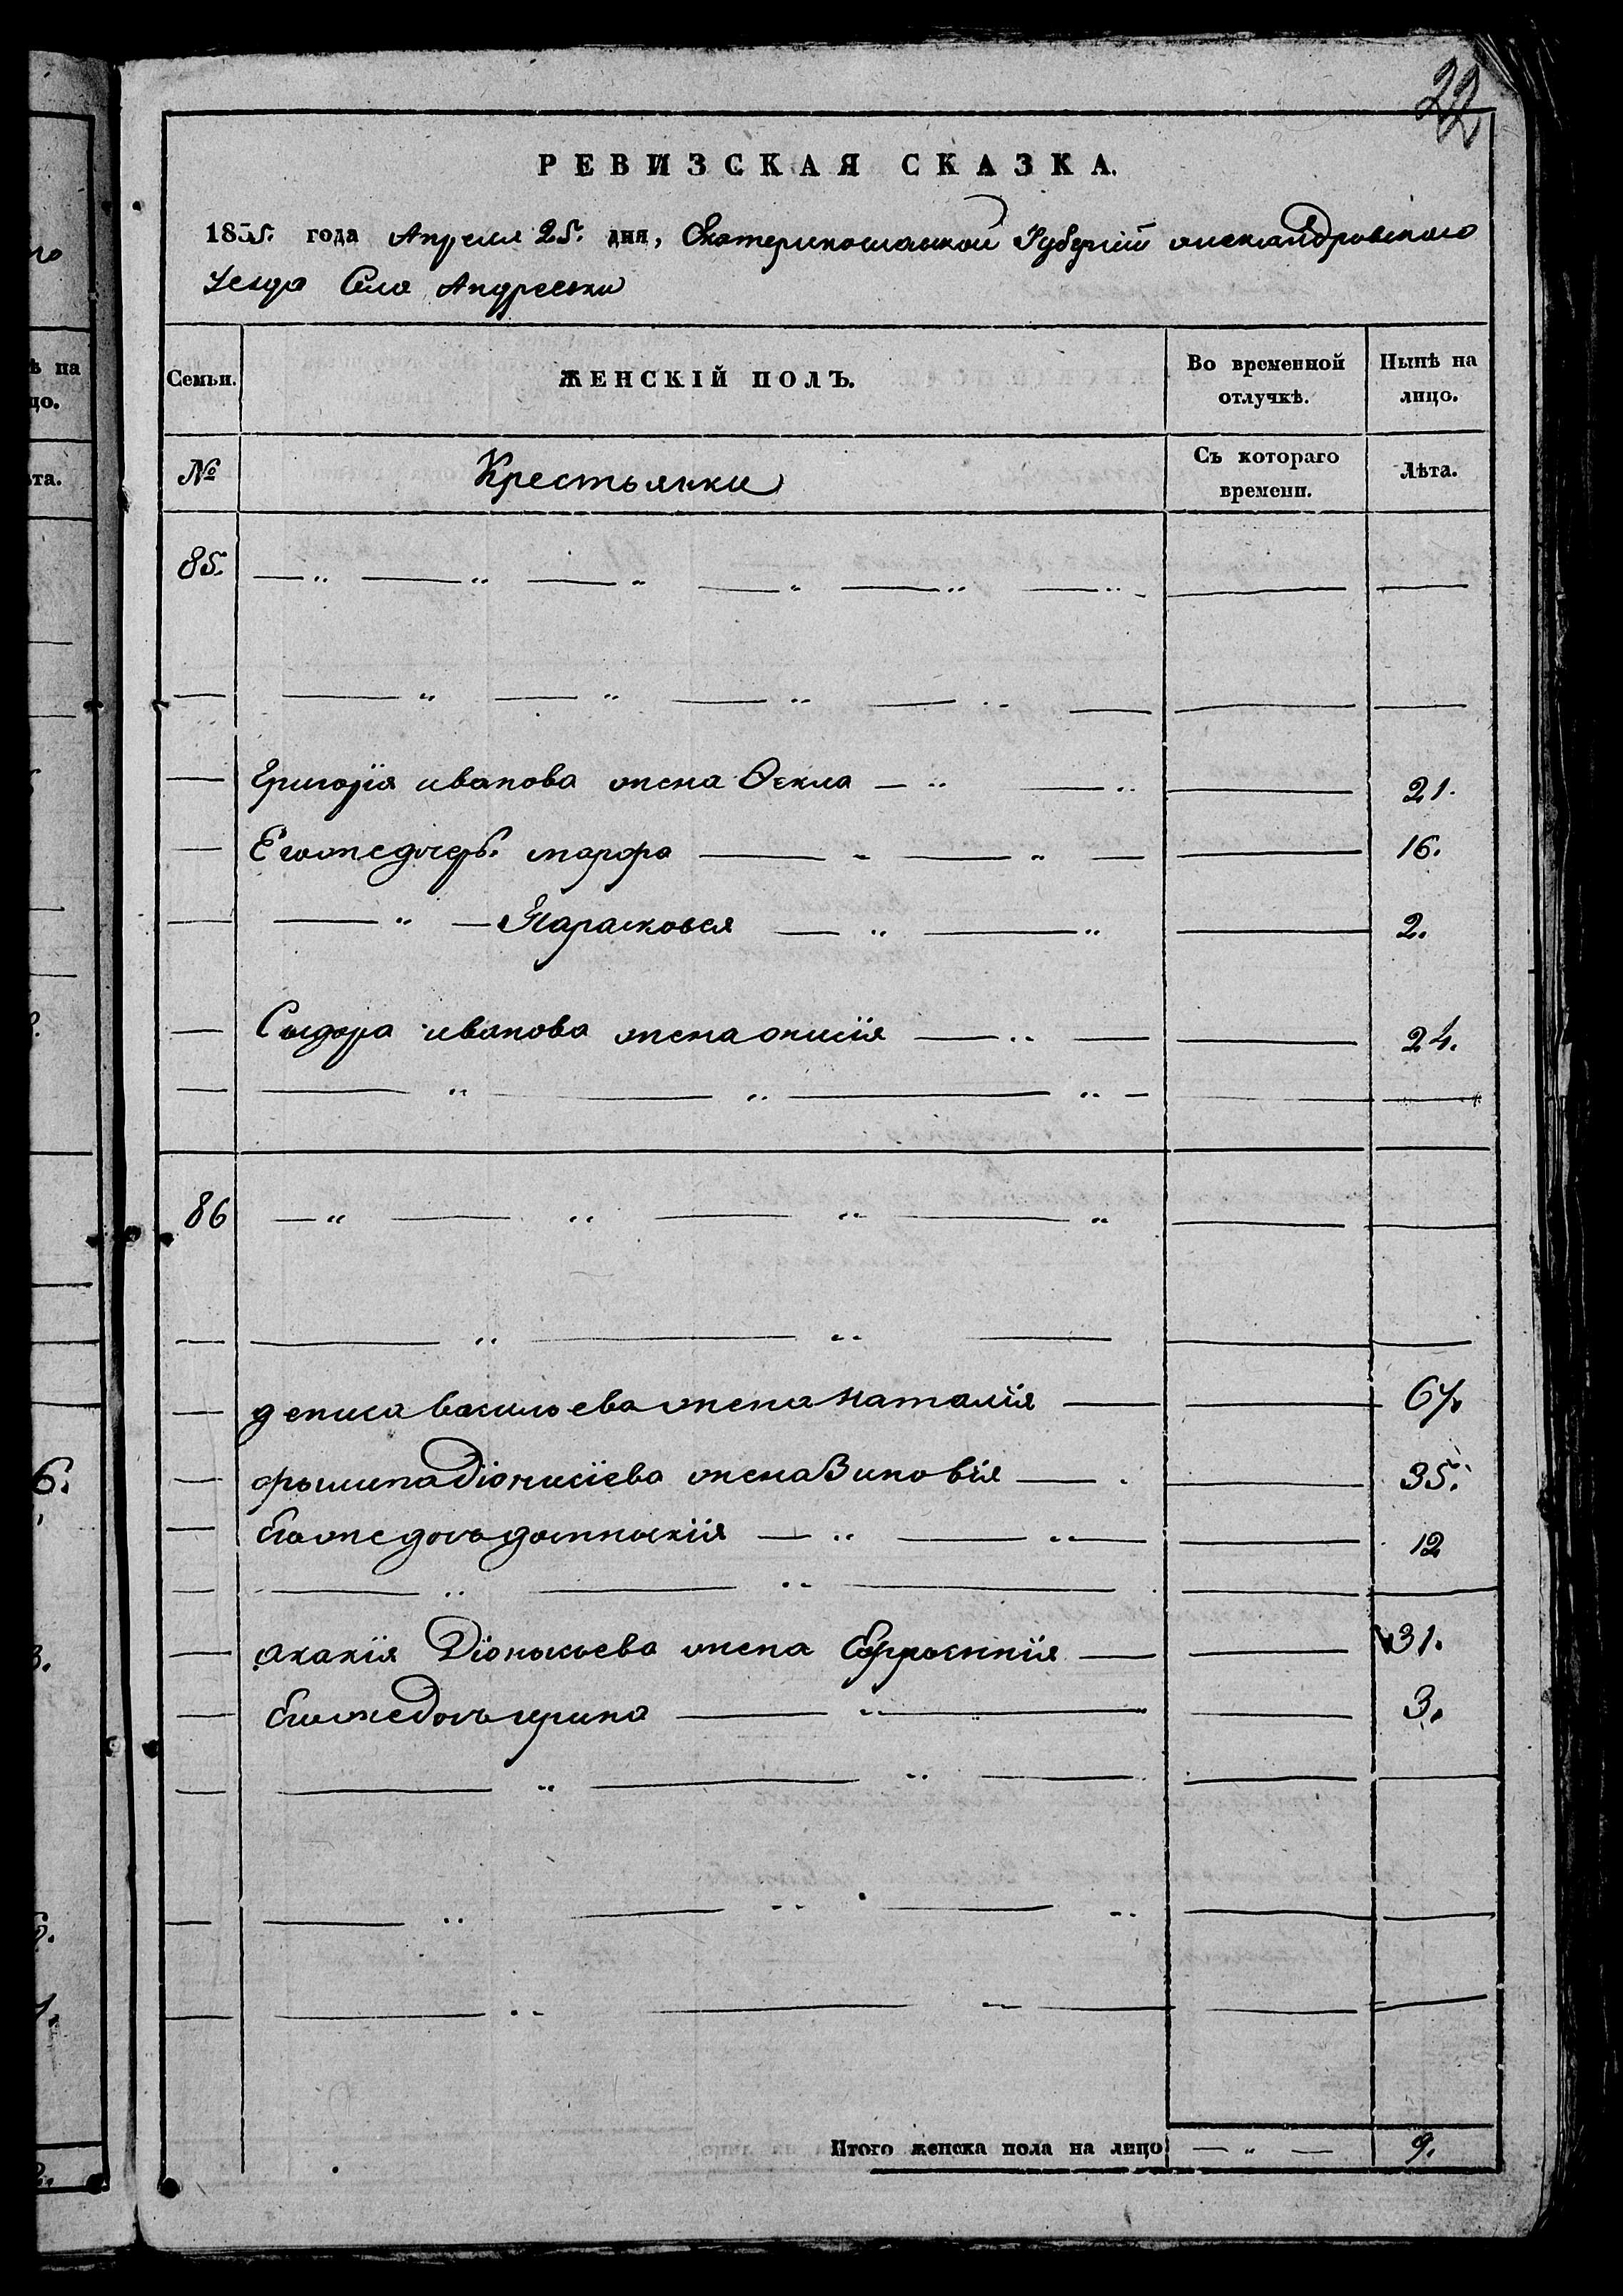 22
РЕВИЗСКАЯ СКАЗКА.
1835. года Апреля 25. дня, Екатеринославской Губерніи александровского
Уезда Села Андреевки
Семьи. ЖЕНСКІЙ ПОЛЪ. Во временной отлучкѣ. Нынѣ на лицо.
№ Крестьянки Съ котораго времени. Лѣта.
85.
Григорія иванова жена Ѳекла 21.
Егожедочерь. марфа 16.
Парасковея 2.
Сыдора иванова жена 24.
86
дениса васильева жена наталія 67.
Діонисіева жена Зиновія 35.
Егоже дочь домникія 12
акакія Діонисьева жена Ефросинія 31.
Егоже дочь ирина 3.
Итого женска пола на лицо 9.